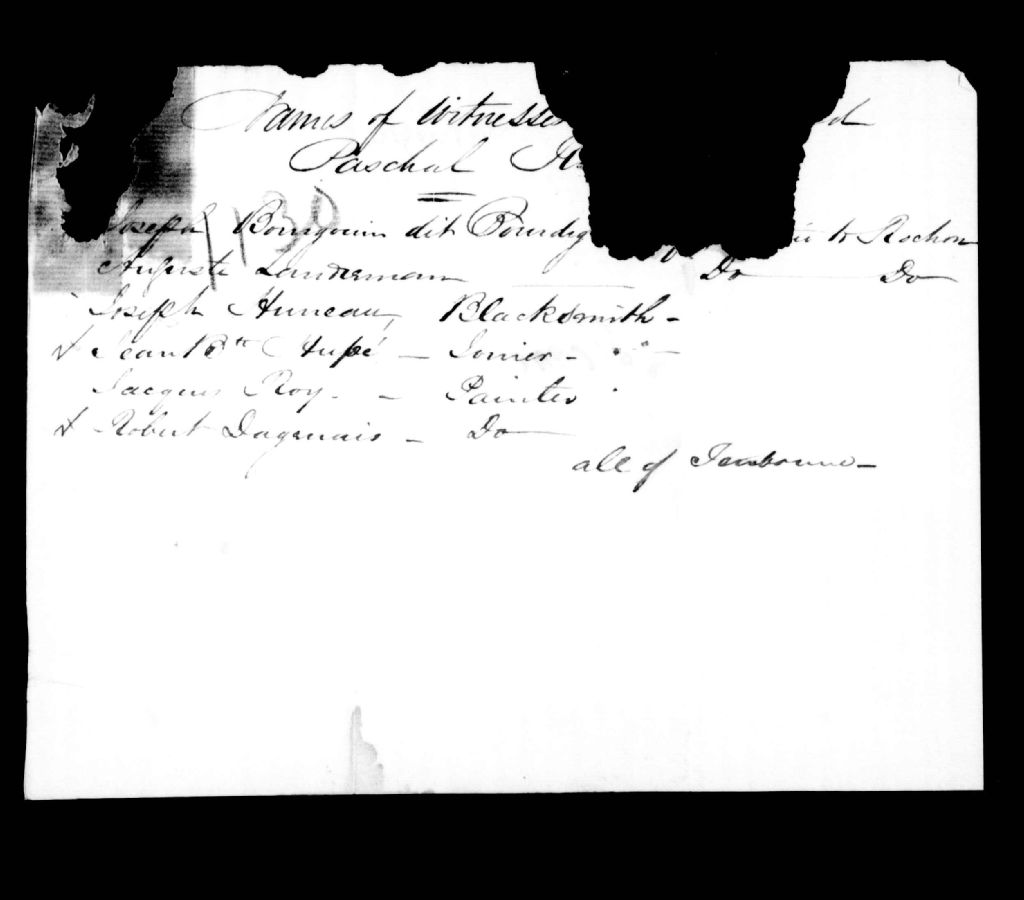 Names of Witnesses
Paschal
1130
Joseph Bourgouin dit to Rochon
Auguste Landerman Do Do
Joseph Huneau, Blacksmith -
Jean Bte Hupé - Joiner -
Jacques Roy - - Painter
Robert Dagenais - Do
all of Terrebonne -